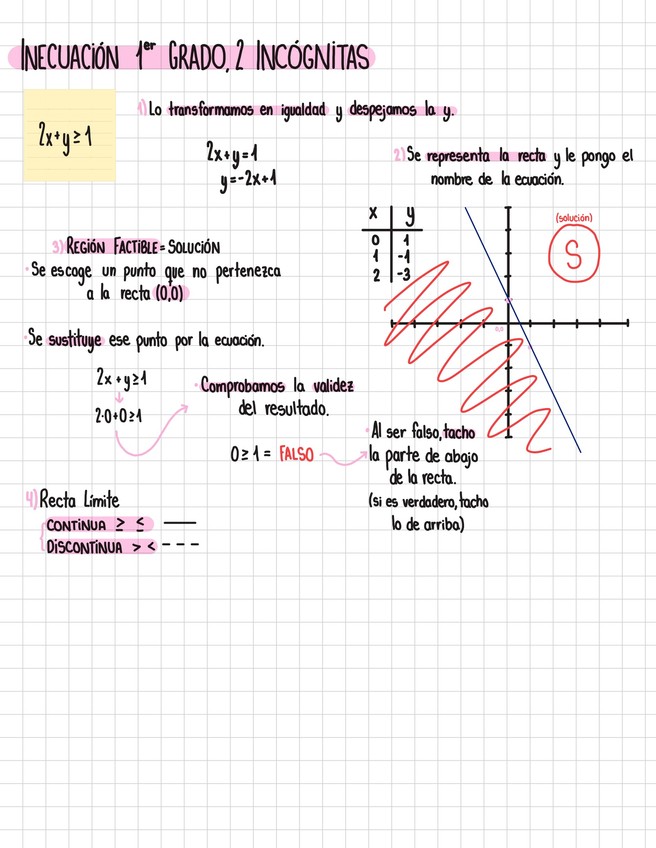 INECUACIÓN 1er GRADO, 2 INCÓGNITAS
2x+y≥1
1) Lo transformamos en igualdad y despejamos la y.
2x+y=1
y=-2x+1
2) Se representa la recta y le pongo el
nombre de la ecuación.
x y
0 1
1 -1
2 -3
(solución)
S
0,0
3) REGIÓN FACTIBLE = SOLUCIÓN
· Se escoge un punto que no pertenezca
a la recta (0,0)
· Se sustituye ese punto por la ecuación.
2x+y≥1
2·0+0≥1
· Comprobamos la validez
del resultado.
0≥1 = FALSO
· Al ser falso, tacho
la parte de abajo
de la recta.
(si es verdadero, tacho
lo de arriba)
4) Recta Límite
CONTINUA ≥ ≤ —
DISCONTINUA > < - - -